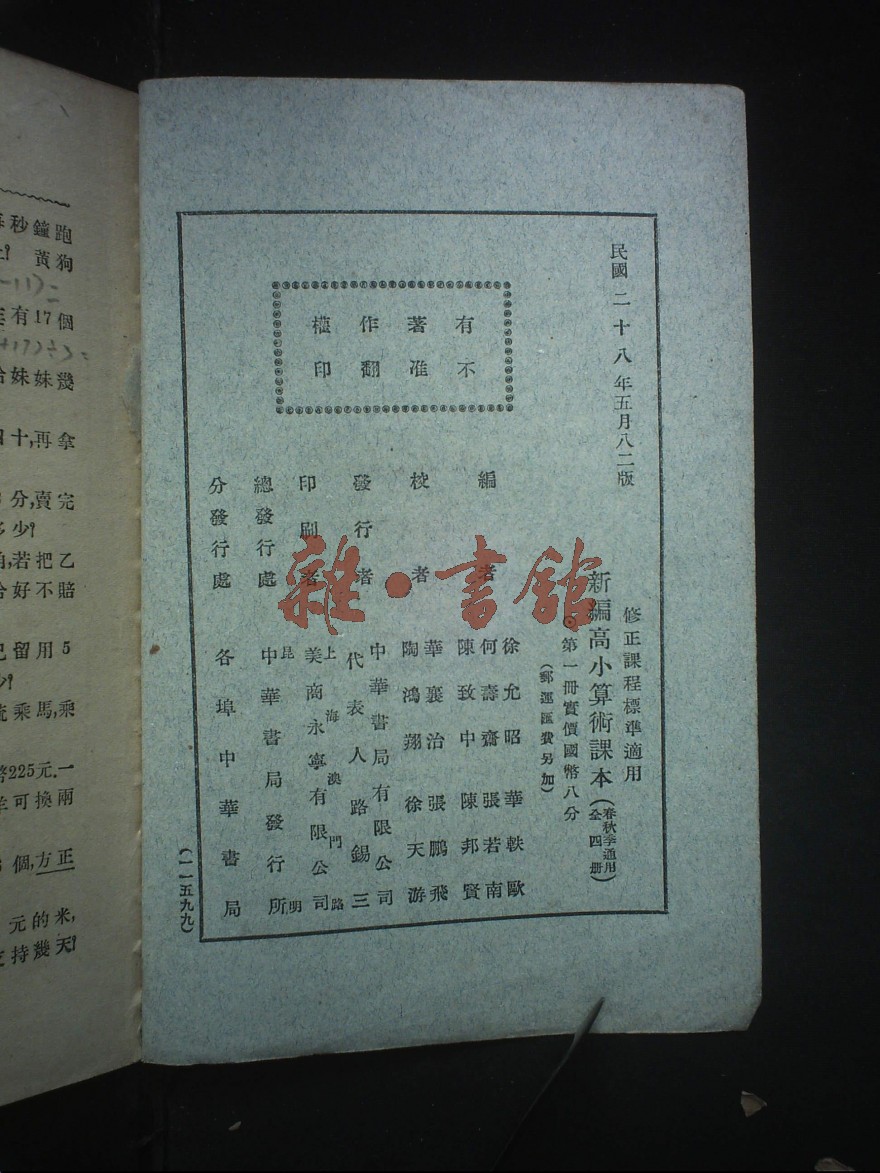 民國二十八年五月八二版
修正課程標準適用
新編高小算術課本(春秋季通用全四册)
第一册實價國幣八分
(郵運匯費另加)
有著作權
不准翻印
編者
徐允昭 華軼歐
何壽齋 張若南
陳致中 陳邦賢
校者
華襄治 張鵬飛
陶鴻翔 徐天游
發行者
中華書局有限公司
代表人路錫三
印刷者
上海澳門路
美商永寧有限公司
總發行處
昆明
中華書局發行所
分發行處
各埠中華書局
(一一五九九)
雜·書館
秒鐘跑
黃狗
有17個
妹妹幾
十,再拿
分,賣完
少?
若把乙
好不賠
留用5
乘馬,乘
225元.一
可換兩
個,方正
元的米,
持幾天?